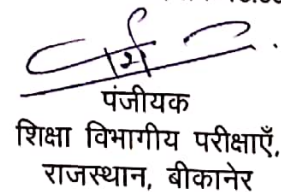 पंजीयक
शिक्षा विभागीय परीक्षाएँ,
राजस्थान, बीकानेर